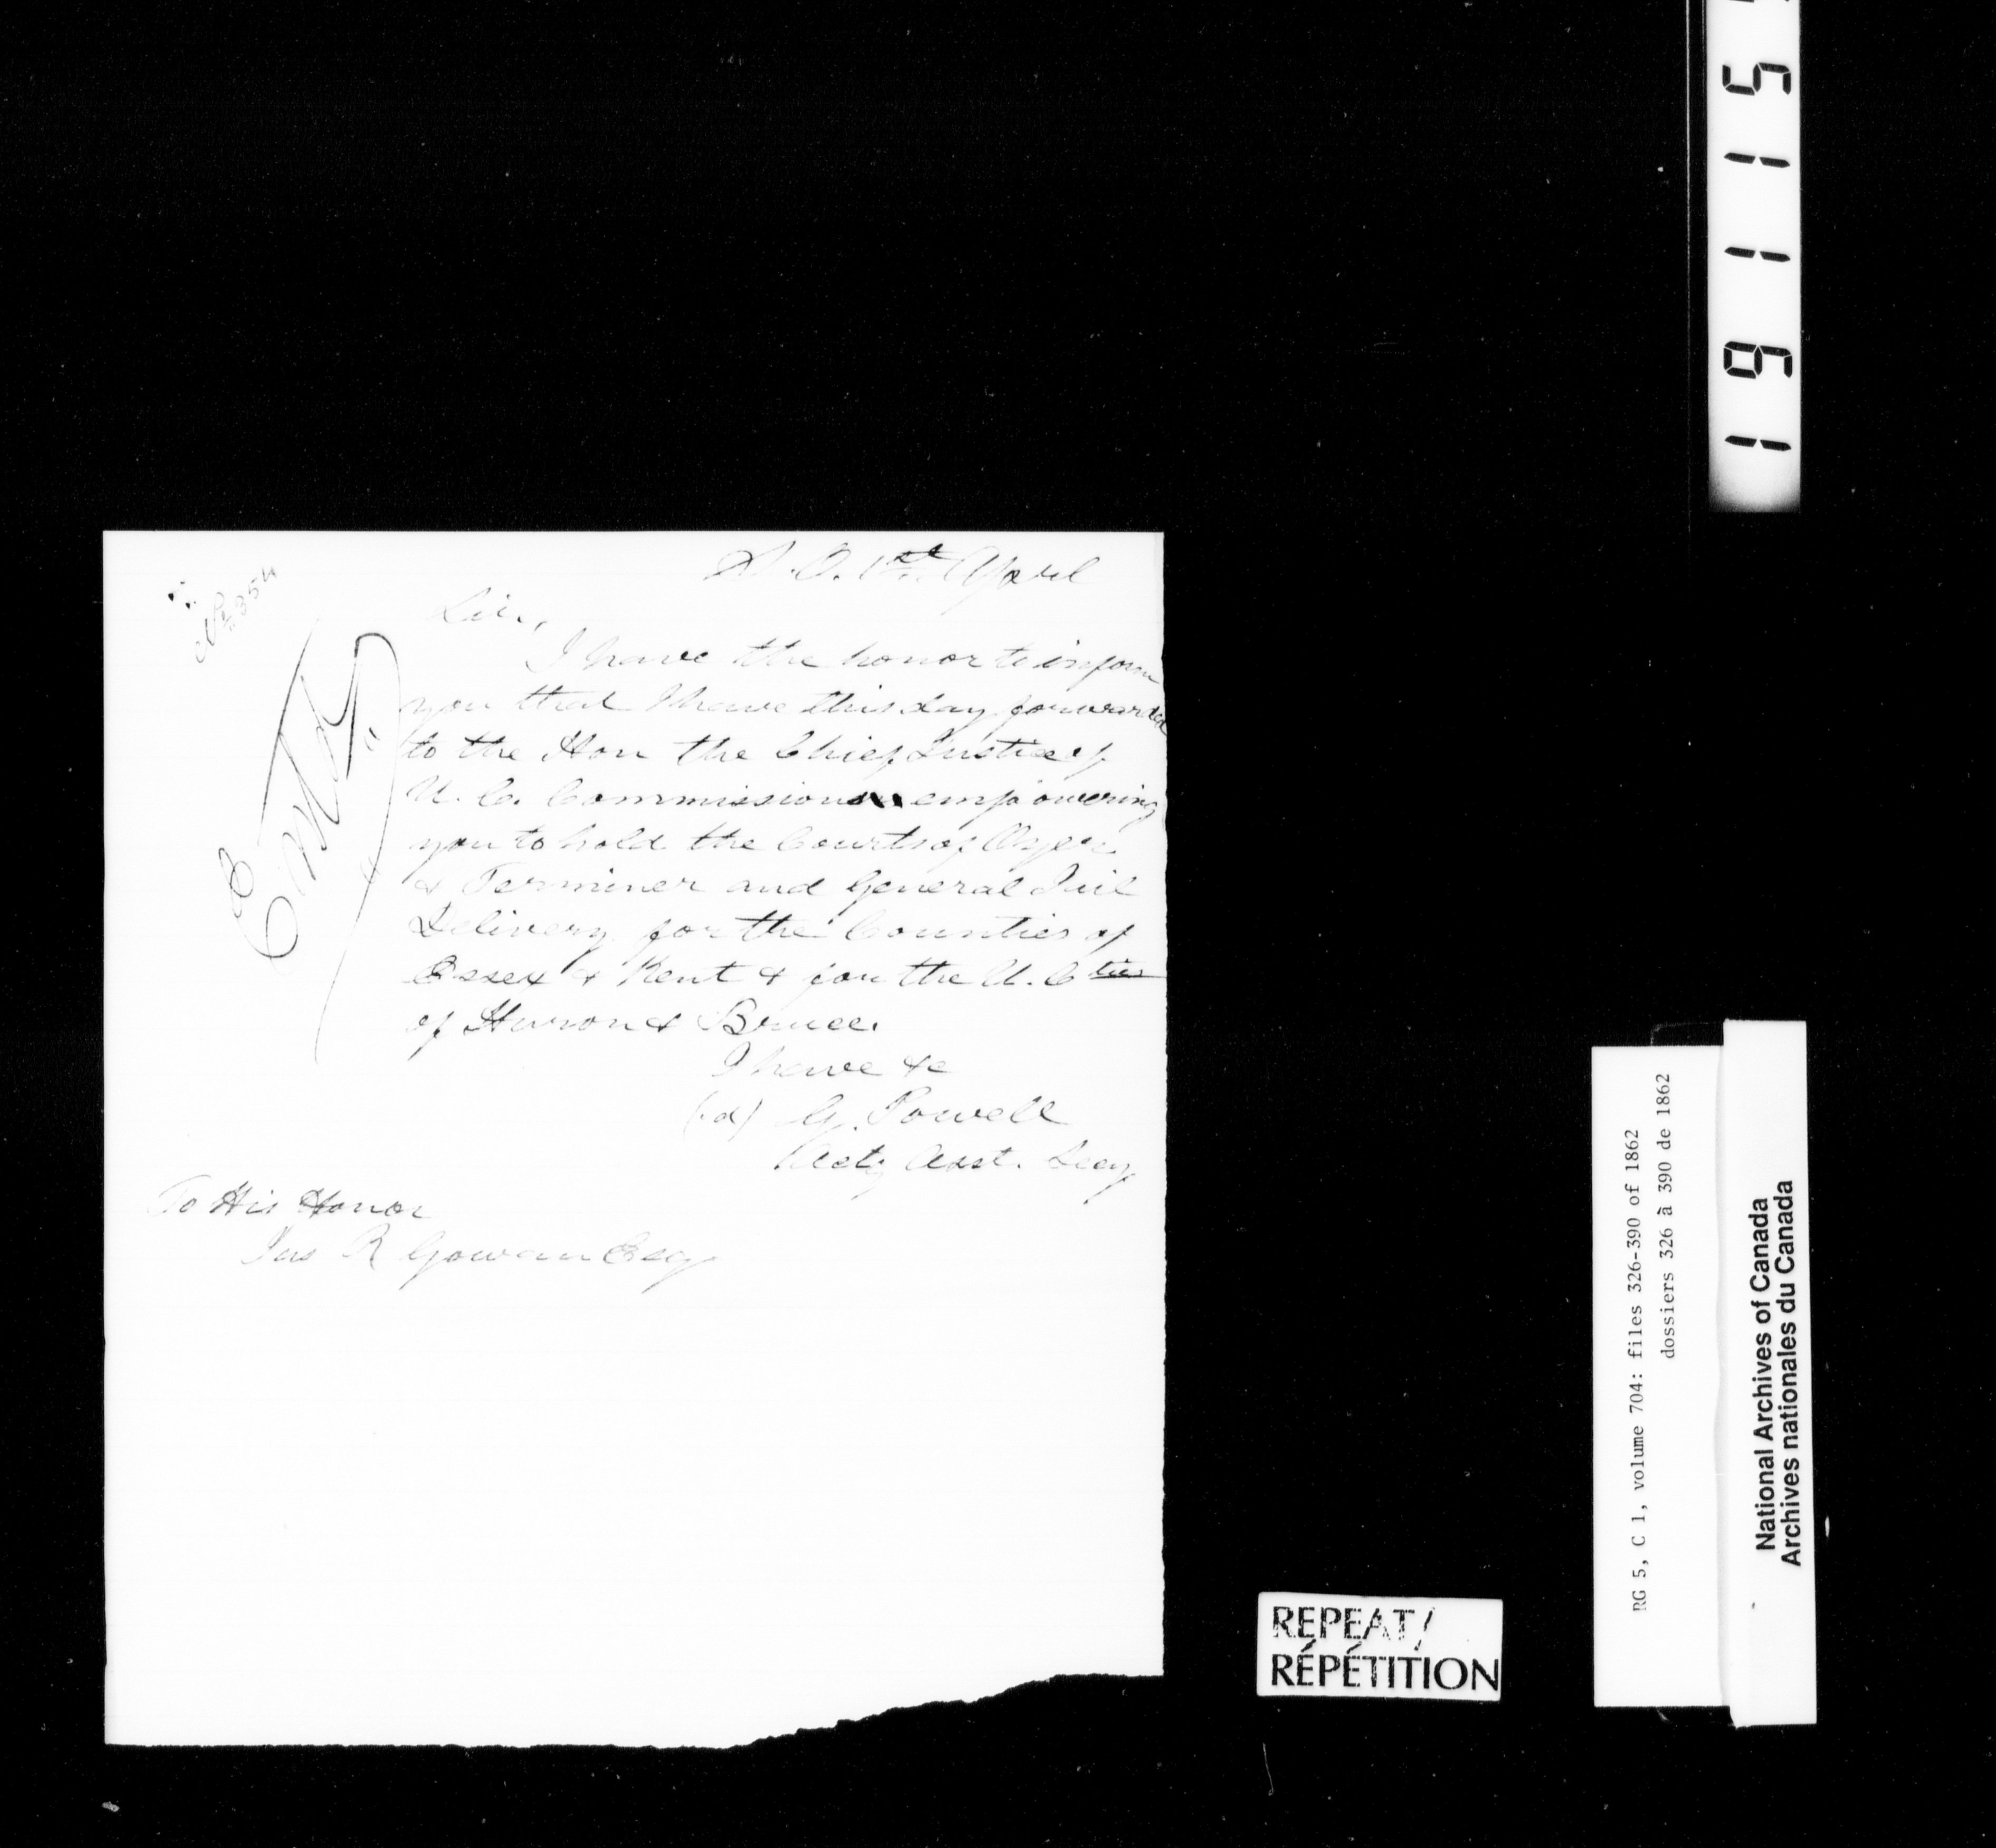 S.O. 1st April
No 354
Sir,
I have the honor to inform
you that I have this day forwarded
to the Hon the Chief Justice of
U.C. Commissions empowering
you to hold the Courts of Oyer
& Terminer and General Jail
Delivery for the Counties of
Essex & Kent & for the U. Cties
of Huron & Bruce.
I have &c
(sd) G. Powell
Actg Asst. Secy
To His Honor
Jas R Gowan Esq
19115
RG 5, C 1, volume 704: files 326-390 of 1862
dossiers 326 à 390 de 1862
National Archives of Canada
Archives nationales du Canada
REPEAT/
RÉPÉTITION